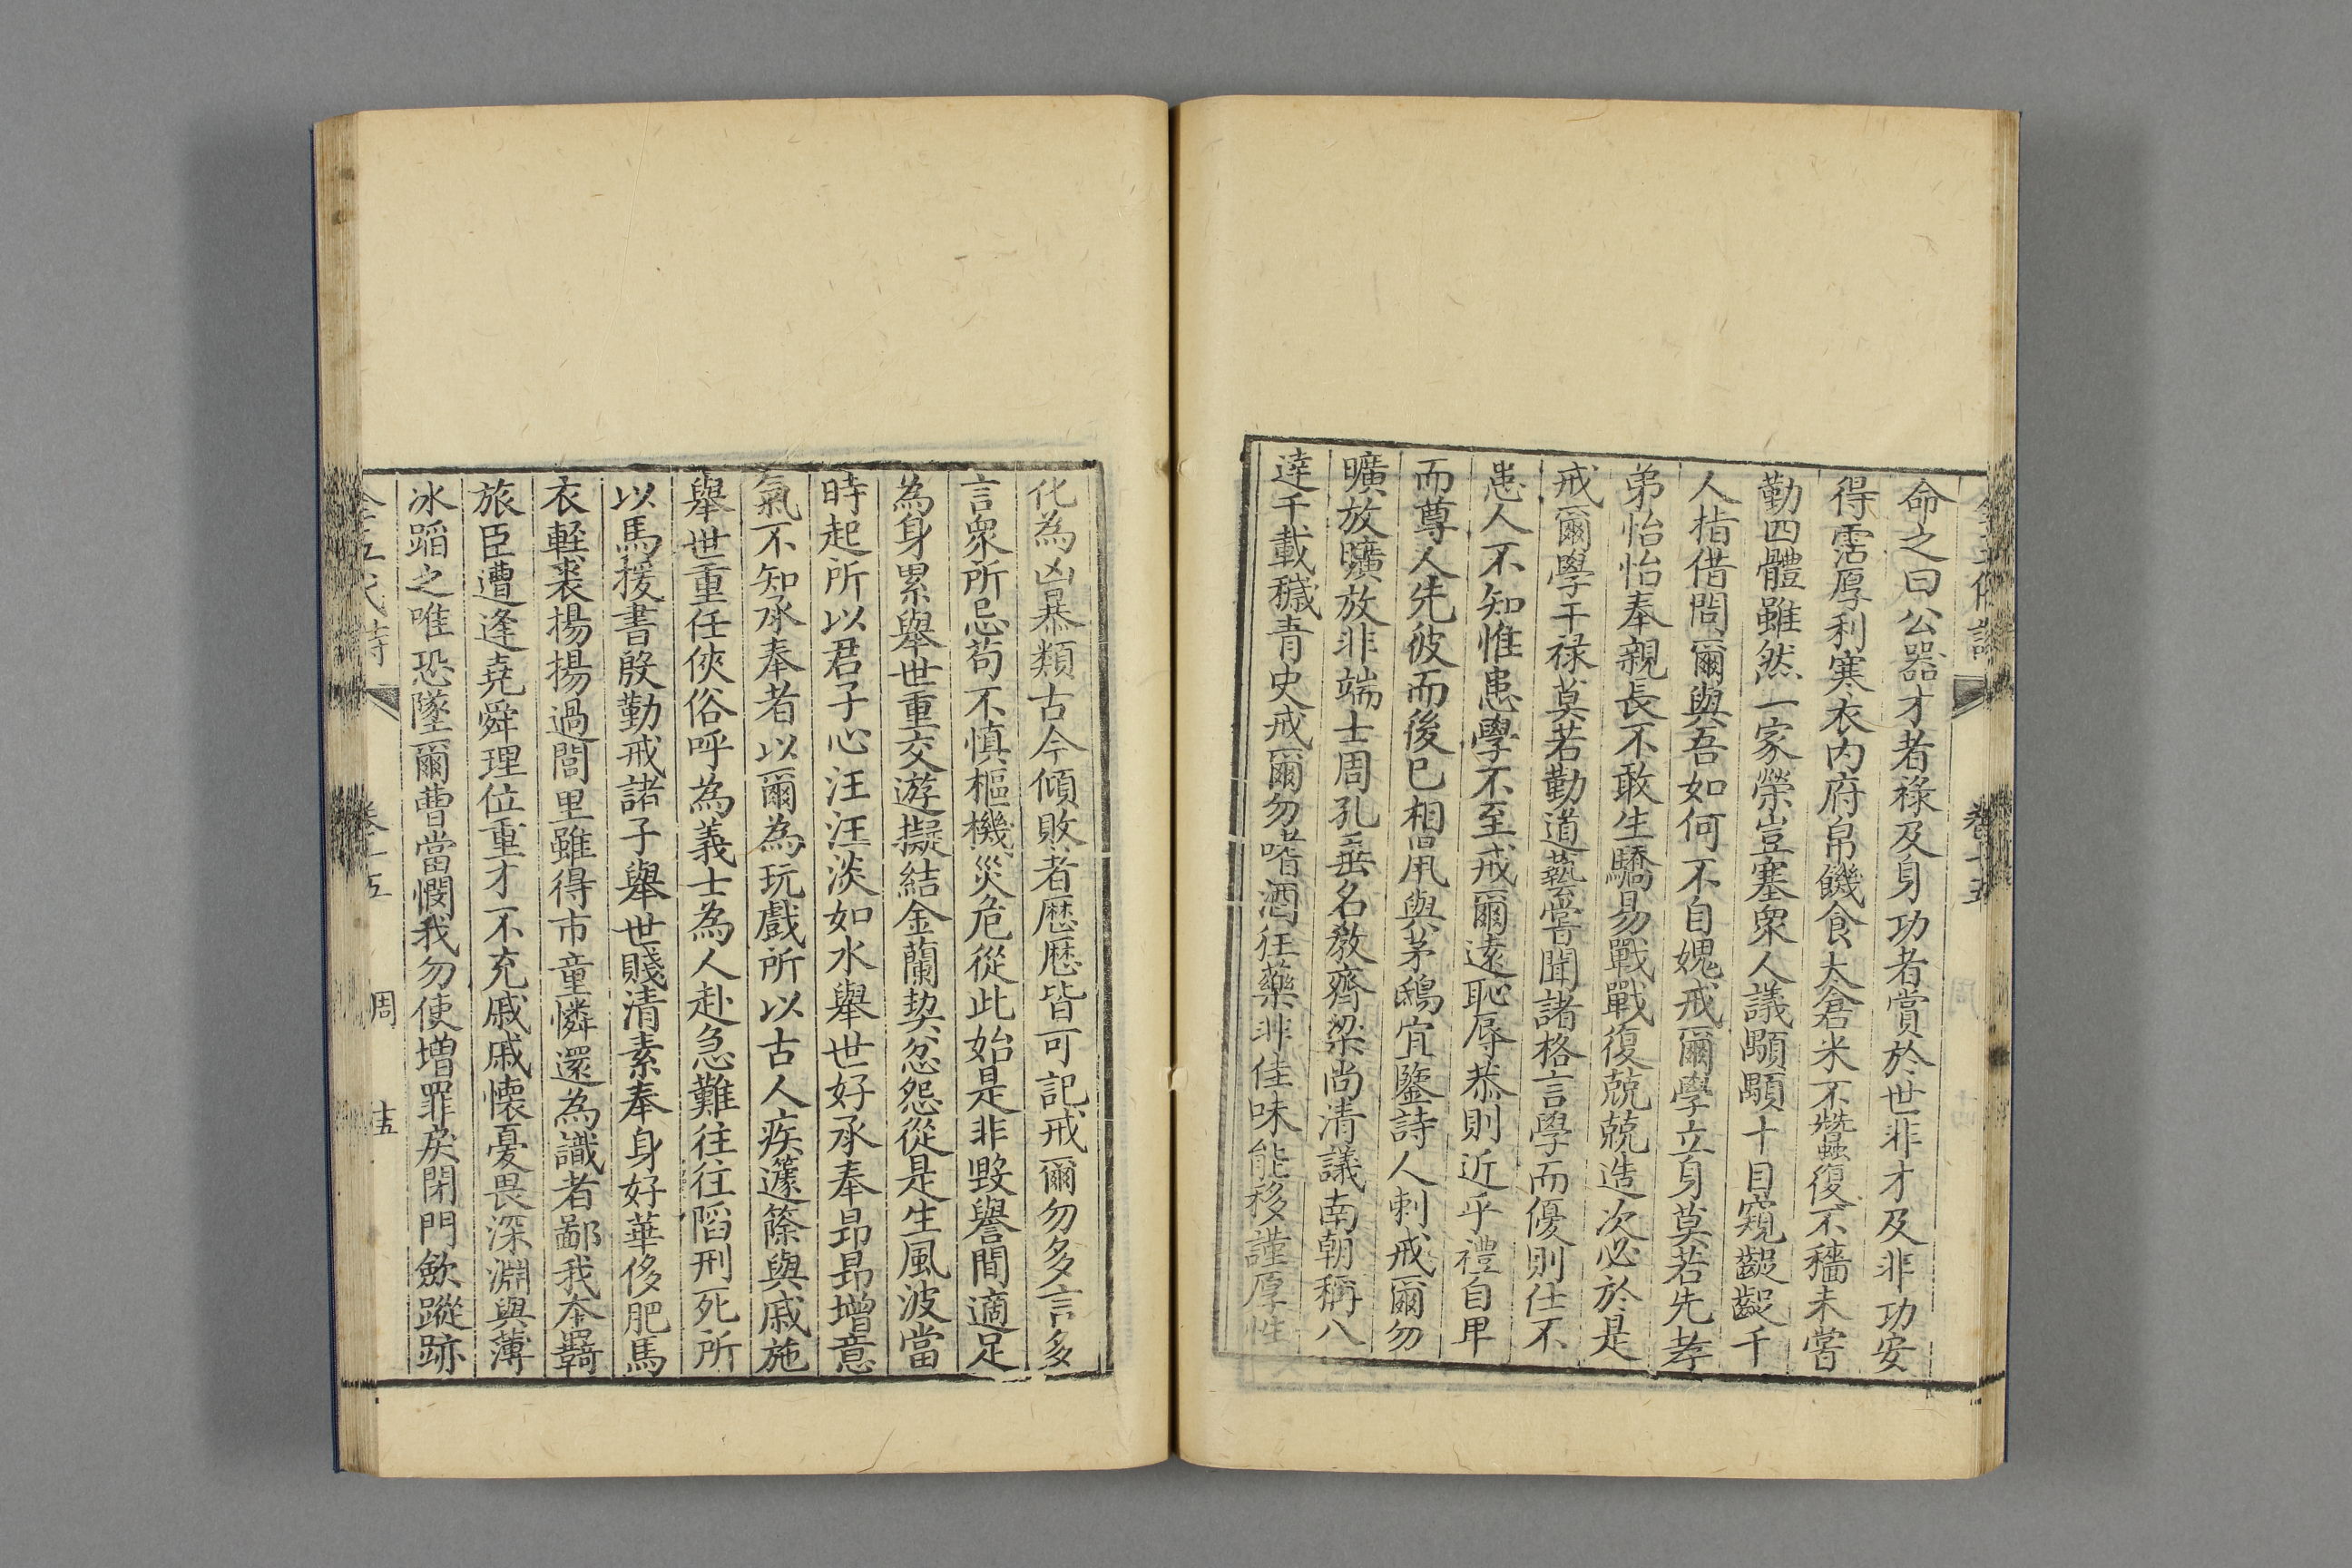 命之曰公器才者祿及身功者賞於世非才及非功安
得霑厚利寒衣内府帛饑食太倉米不蠶復不穡未嘗
勤四體雖然一家榮豈塞衆人議顒顒十目窺齪齪千
人指借問爾與吾如何不自媿戒爾學立身莫若先孝
弟怡怡奉親長不敢生驕易戰戰復兢兢造次必於是
戒爾學干祿莫若勤道藝嘗聞諸格言學而優則仕不
患人不知惟患學不至戒爾遠恥辱恭則近乎禮自卑
而尊人先彼而後已相鼠與茅鴟宜鑒詩人刺戒爾勿
曠放曠放非端士周孔垂名教齊梁尚清議南朝稱八
達千載穢青史戒爾勿嗜酒狂藥非佳味能移謹厚性
化為凶暴類古今傾敗者歷歷皆可記戒爾勿多言多
言衆所忌苟不慎樞機災危從此始是非毀譽間適足
為身累舉世重交遊擬結金蘭契忿怨從是生風波當
時起所以君子心汪汪淡如水舉世好承奉昻昻增意
氣不知承奉者以爾為玩戲所以古人疾籧篨與戚施
舉世重任俠俗呼為義士為人赴急難往往陷刑死所
以馬援書殷勤戒諸子舉世賤清素奉身好華侈肥馬
衣輕裘揚揚過閭里雖得市童憐還為識者鄙我本羇
旅臣遭逢堯舜理位重才不充戚戚懷憂畏深淵與薄
冰蹈之唯恐墜爾曹當憫我勿使增罪戾閉門歛蹤跡
全五代詩 卷十五 周 十五